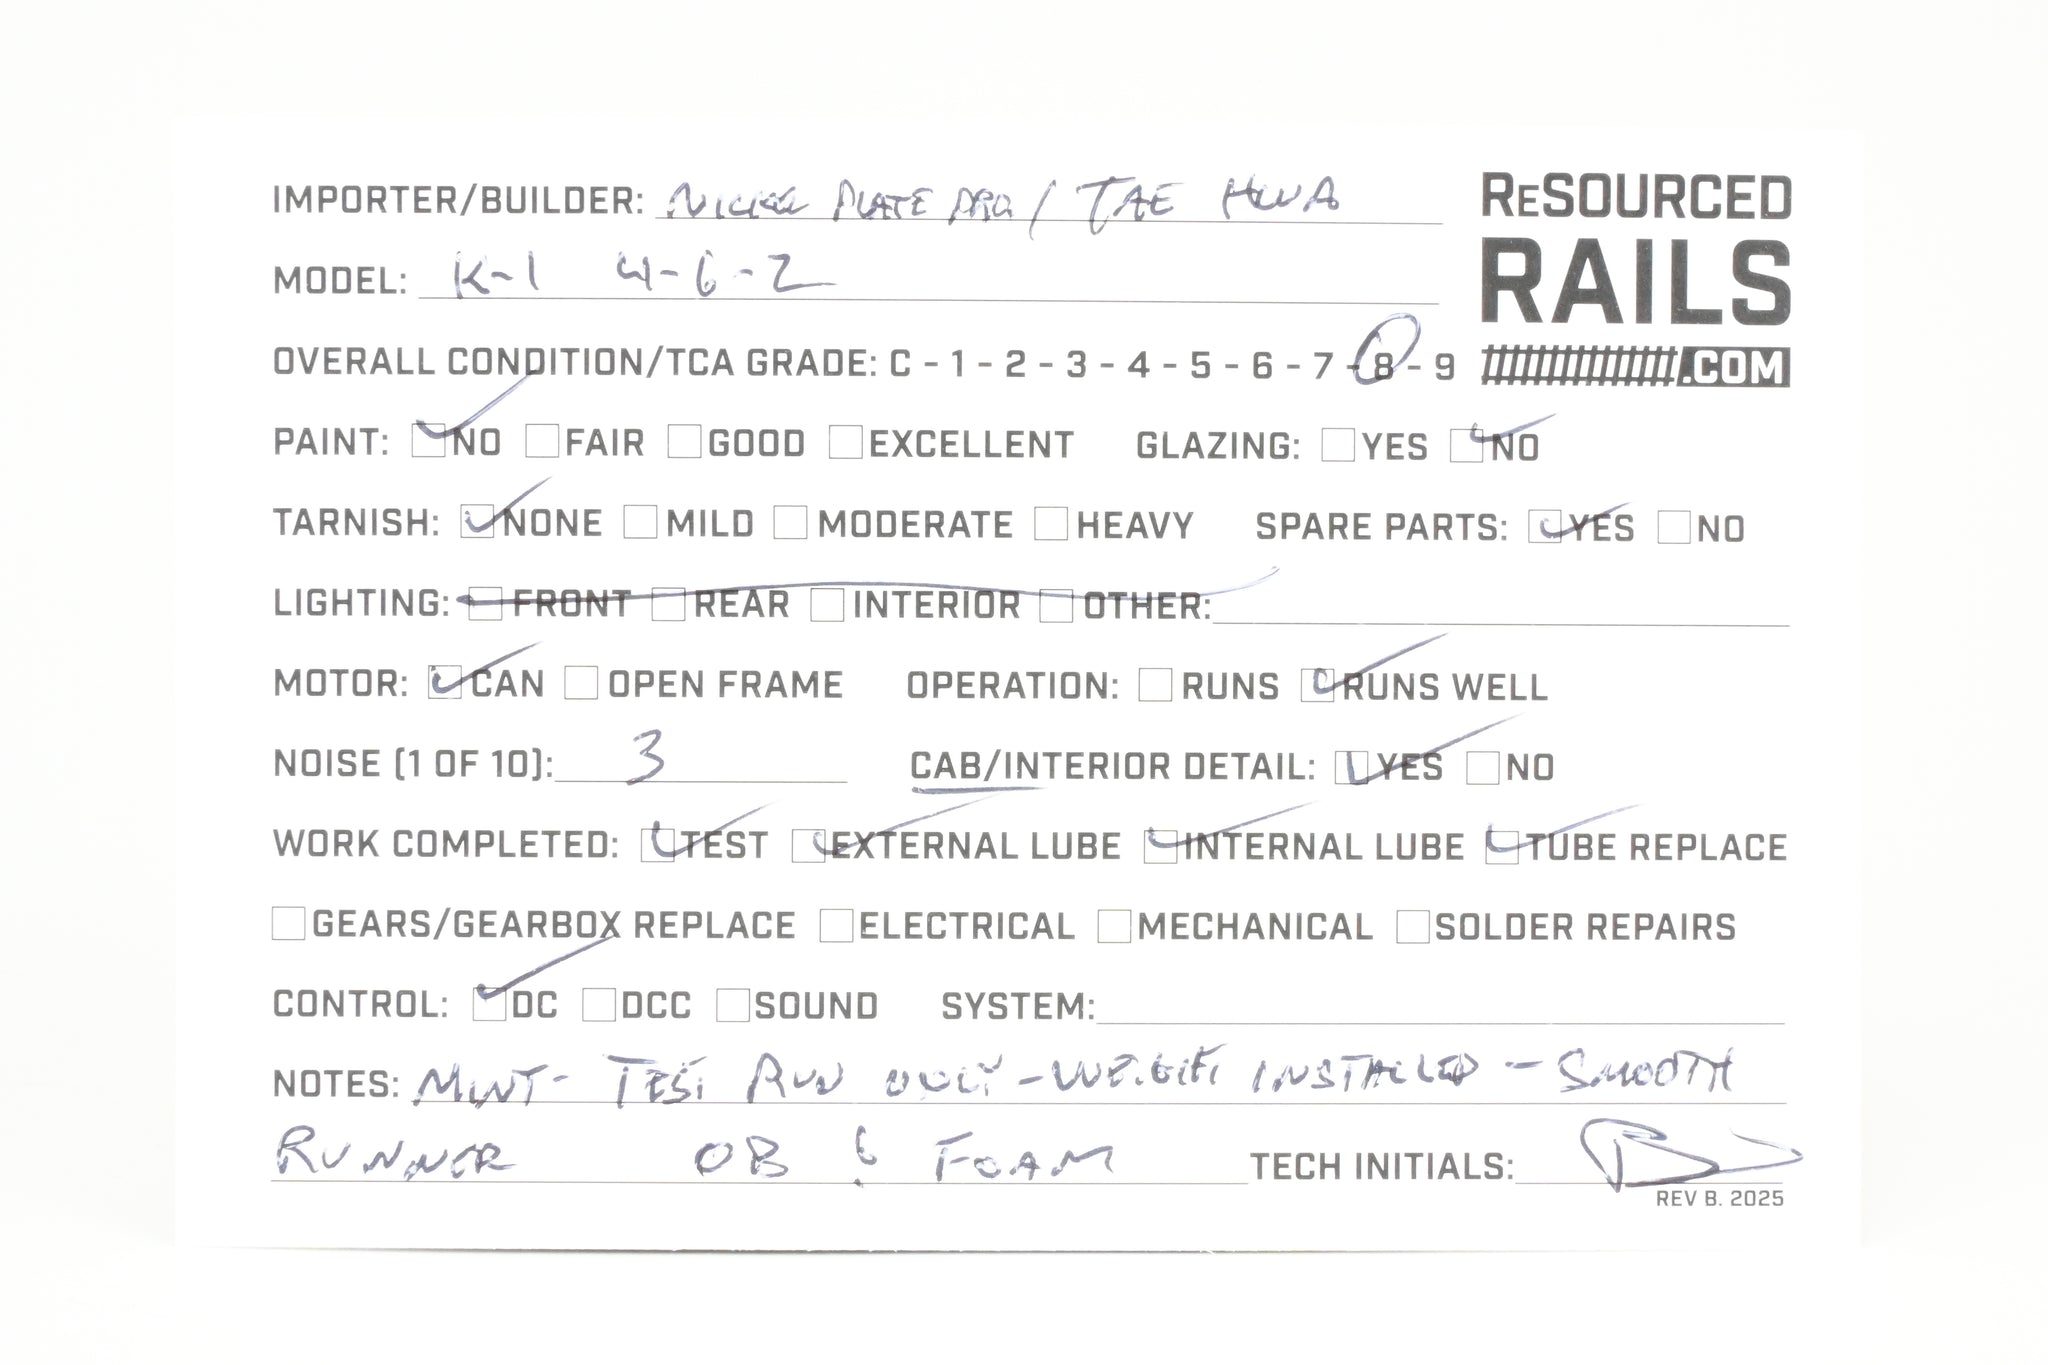 IMPORTER/BUILDER: NICKEL PLATE PRO / TAE HWA
ReSOURCED
RAILS
.COM
MODEL: K-1 4-6-2
OVERALL CONDITION/TCA GRADE: C - 1 - 2 - 3 - 4 - 5 - 6 - 7 - 8 - 9
PAINT: NO FAIR GOOD EXCELLENT GLAZING: YES NO
TARNISH: NONE MILD MODERATE HEAVY SPARE PARTS: YES NO
LIGHTING: FRONT REAR INTERIOR OTHER:
MOTOR: CAN OPEN FRAME OPERATION: RUNS RUNS WELL
NOISE (1 OF 10): 3 CAB/INTERIOR DETAIL: YES NO
WORK COMPLETED: TEST EXTERNAL LUBE INTERNAL LUBE TUBE REPLACE
GEARS/GEARBOX REPLACE ELECTRICAL MECHANICAL SOLDER REPAIRS
CONTROL: DC DCC SOUND SYSTEM:
NOTES: MINT - TEST RUN ONLY - WEIGHT INSTALLED - SMOOTH
RUNNER OB & FOAM TECH INITIALS:
REV B. 2025